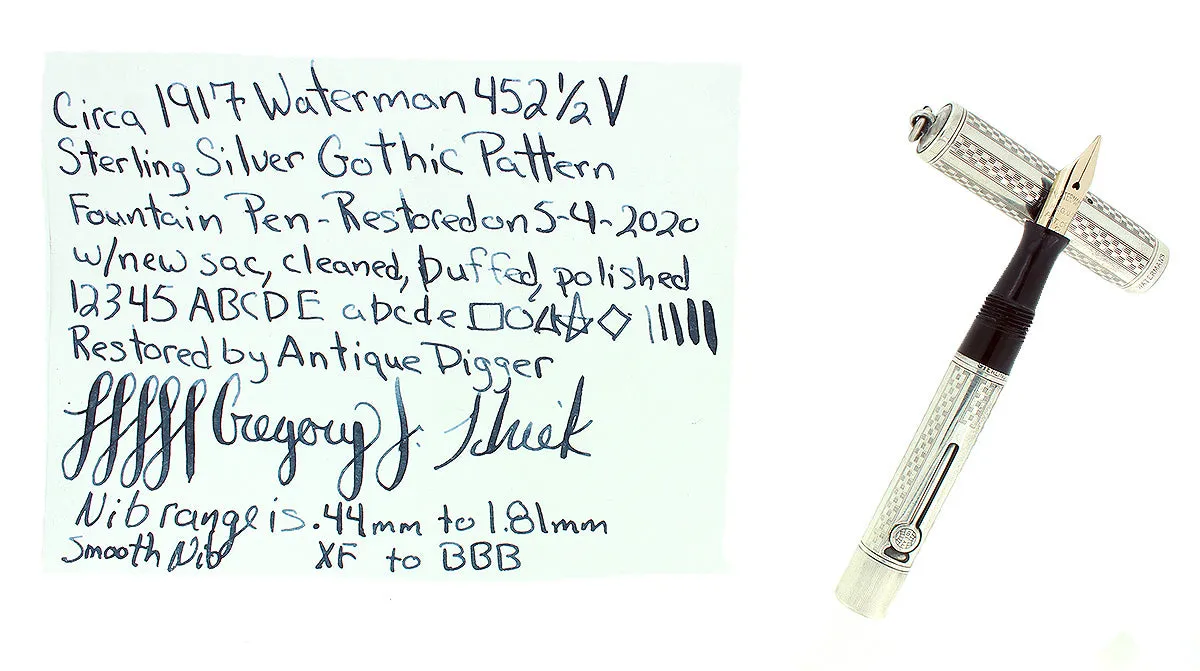 Circa 1917 Waterman 452½ V
Sterling Silver Gothic Pattern
Fountain Pen-Restored on 5-4-2020
w/new sac, cleaned, buffed, polished
12345 ABCDE abcde
Restored by Antique Digger
Gregory J.
Nib range is .44mm to 1.81mm
Smooth Nib XF to BBB
WATERMANS
STERLING